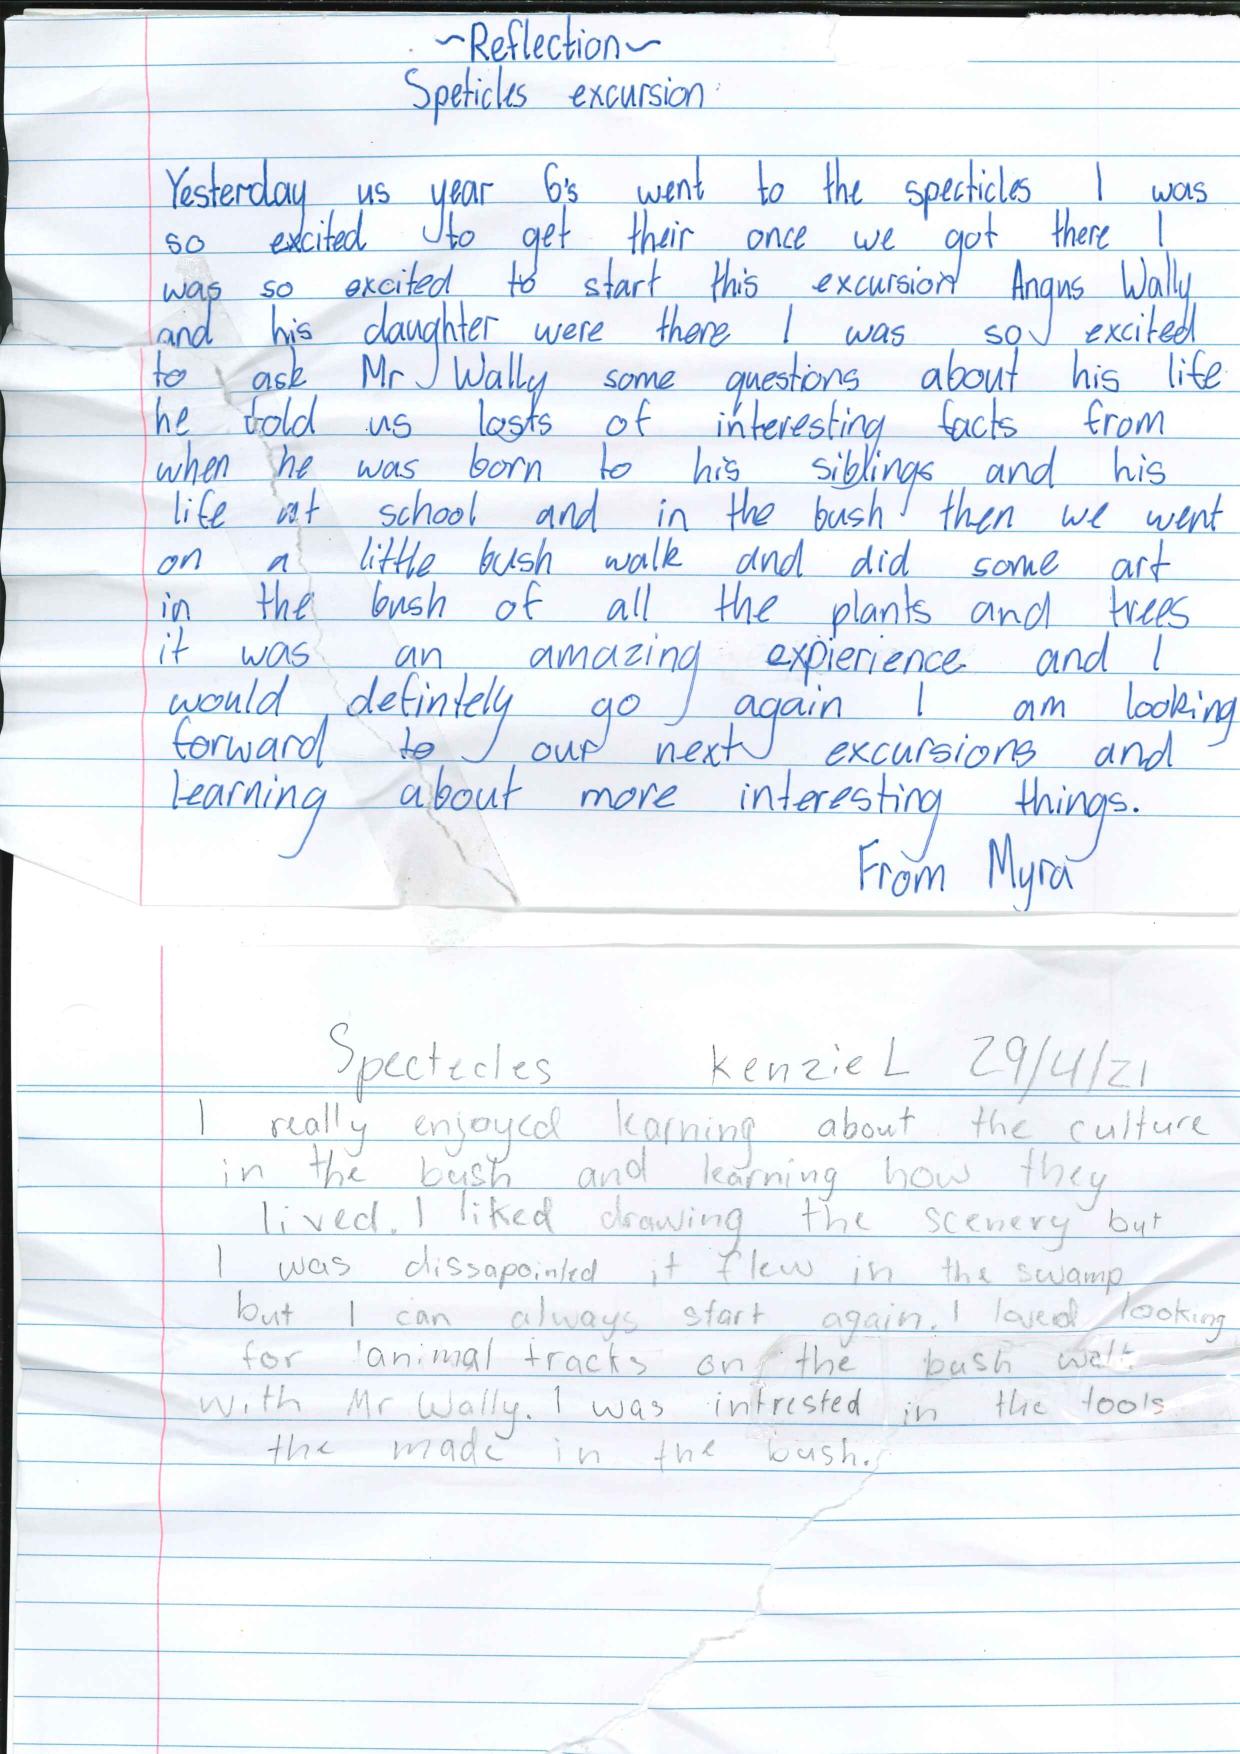 ~Reflection~
Speticles excursion
Yesterday us year 6's went to the specticles I was
so excited to get their once we got there I
was so excited to start this excursion Angus Wally
and his daughter were there I was so excited
to ask Mr Wally some questions about his life
he told us losts of interesting facts from
when he was born to his siblings and his
life at school and in the bush then we went
on a little bush walk and did some art
in the bush of all the plants and trees
it was an amazing expierience and I
would defintely go again I am looking
forward to our next excursions and
learning about more interesting things.
From Myra
Spectecles Kenzie L 29/4/21
I really enjoyed learning about the culture
in the bush and learning how they
lived. I liked drawing the scenery but
I was dissapointed it flew in the swamp
but I can always start again. I loved looking
for animal tracks on the bush walk
with Mr Wally. I was intrested in the tools
the made in the bush.